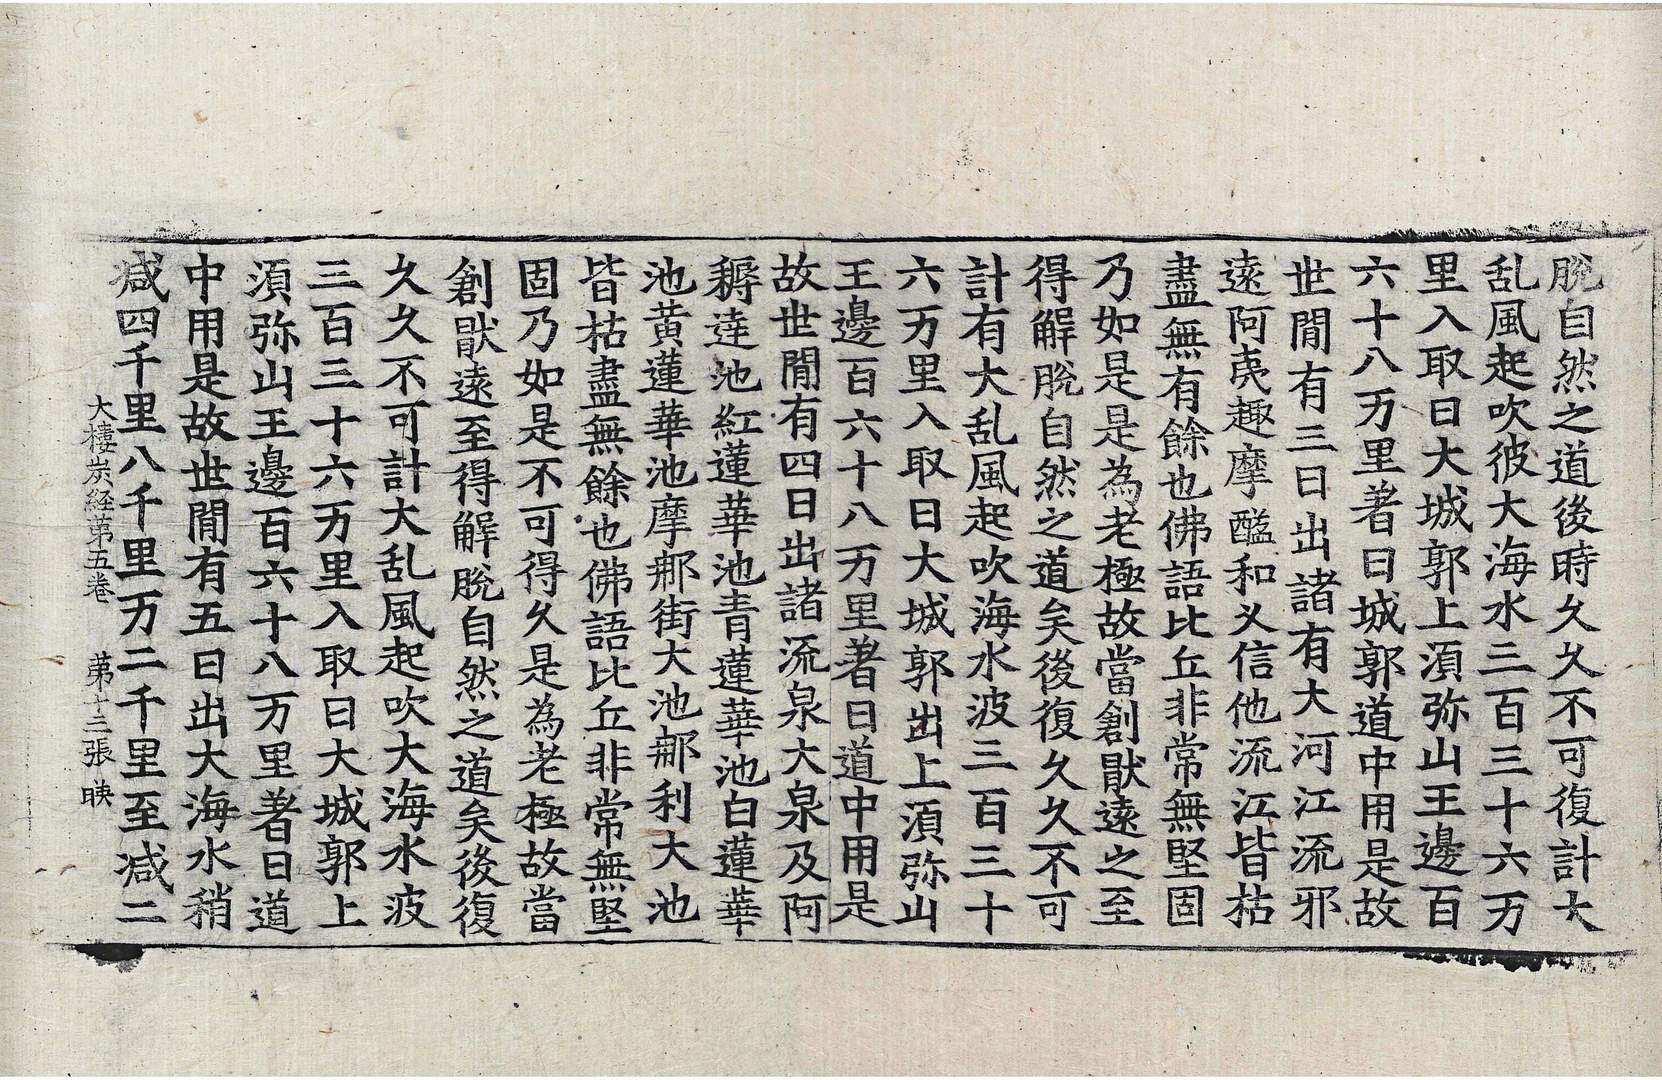 脫自然之道後時久久不可復計大
乱風起吹彼大海水三百三十六万
里入取日大城郭上湏弥山王邊百
六十八万里著日城郭道中用是故
世閒有三日出諸有大河江流邪
遠阿夷趣摩醯和义信他流江皆枯
盡無有餘也佛語比丘非常無堅固
乃如是是為老極故當創猒遠之至
得解脫自然之道矣後復久久不可
計有大乱風起吹海水波三百三十
六万里入取日大城郭出上湏弥山
王邊百六十八万里著日道中用是
故世閒有四日出諸流泉大泉及阿
耨達池紅蓮華池青蓮華池白蓮華
池黄蓮華池摩那街大池郍利大池
皆枯盡無餘也佛語比丘非常無堅
固乃如是不可得久是為老極故當
創猒遠至得解脫自然之道矣後復
久久不可計大乱風起吹大海水波
三百三十六万里入取日大城郭上
湏弥山王邊百六十八万里著日道
中用是故世閒有五日出大海水稍
减四千里八千里万二千里至减二
大樓炭経苐五卷　苐十三張　㫸